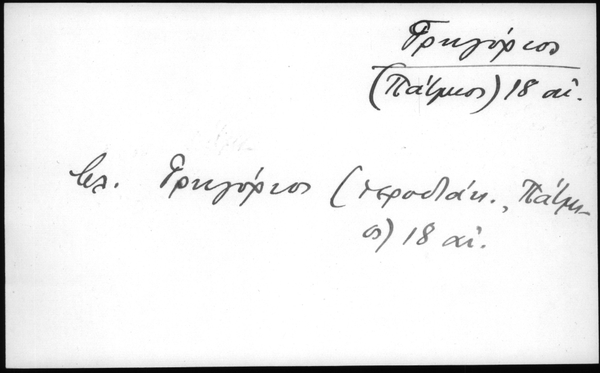 Γρηγόριος
(Πάτμιος) 18 αἰ.
βλ. Γρηγόριος (ιεροδιάκ., Πάτμι-
ος) 18 αἰ.